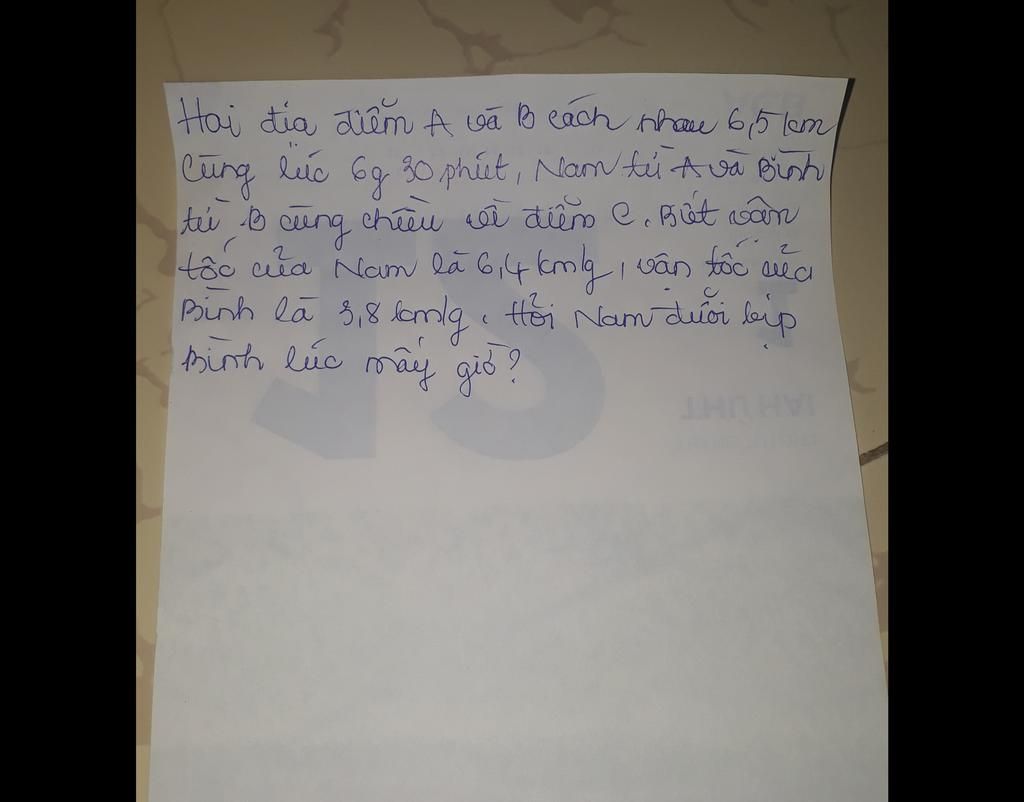 Hai địa điểm A và B cách nhau 6,5 km
Cùng lúc 6g 30 phút, Nam từ A và Bình
từ B cùng chiều về điểm C. Biết vận
tốc của Nam là 6,4 km/g, vận tốc của
Bình là 3,8 km/g. Hỏi Nam đuổi kịp
Bình lúc mấy giờ?